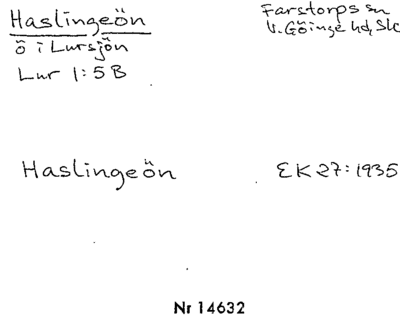 Haslingeön
ö i Lursjön
Lur 1:5 B
Farstorps sn
V. Göinge hd, Sk
Haslingeön
EK 27:1935
Nr 14632